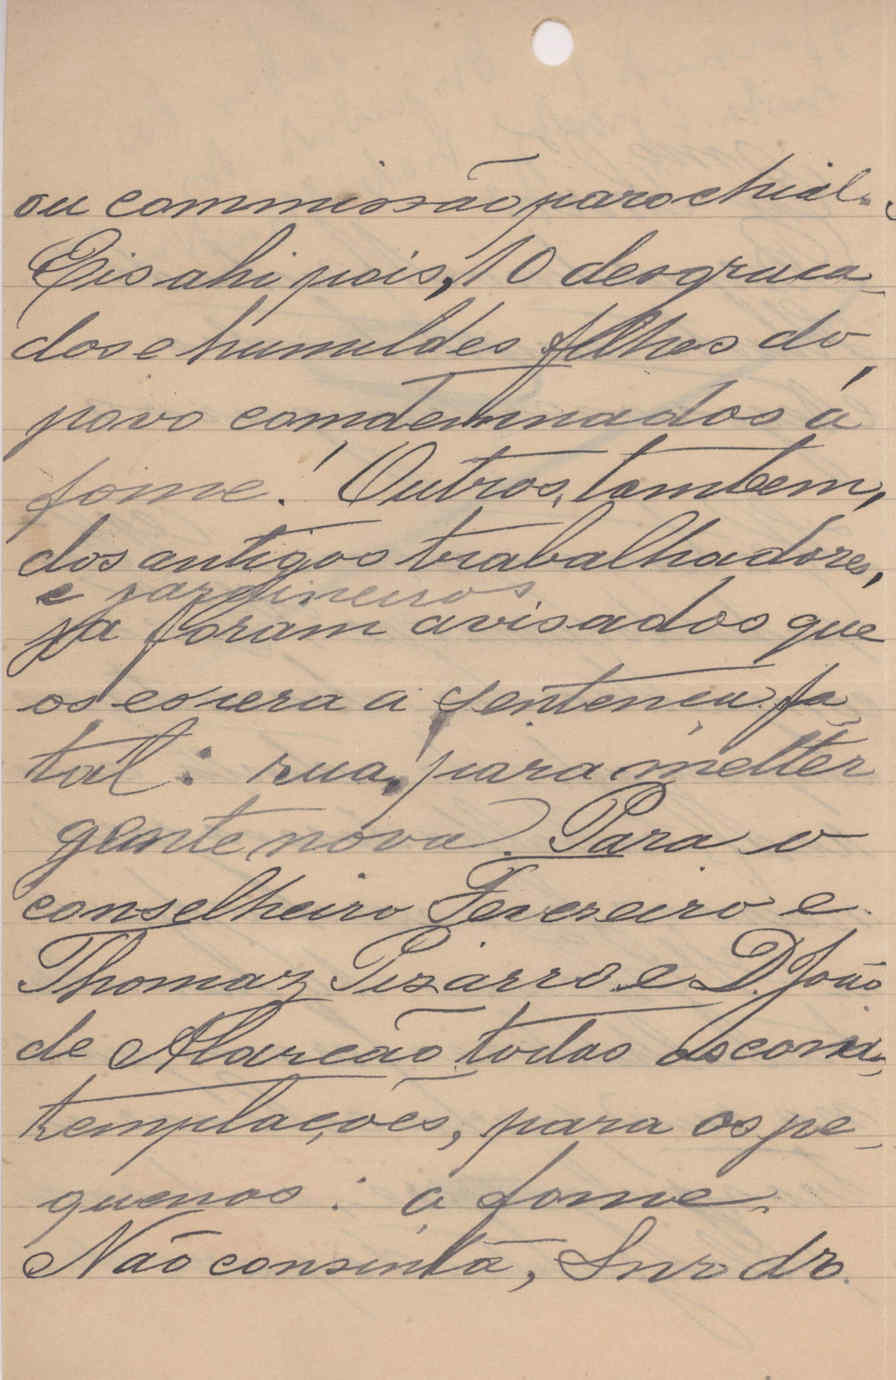 ou commissão parochial.
Eis ahi pois, 10 desgraça-
dos e humildes filhos do
povo comdemnados á
fome! Outros, tambem,
dos antigos trabalhadores,
e jardineiros
ja foram avisados que
os espera a sentença fa-
tal: rua, para metter
gente nova. Para o
conselheiro Fevereiro e
Thomaz Pizarro e D. João
de Alarcão todas as con-
templações, para os pe-
quenos: a fome.
Não consinta, Snr dr.